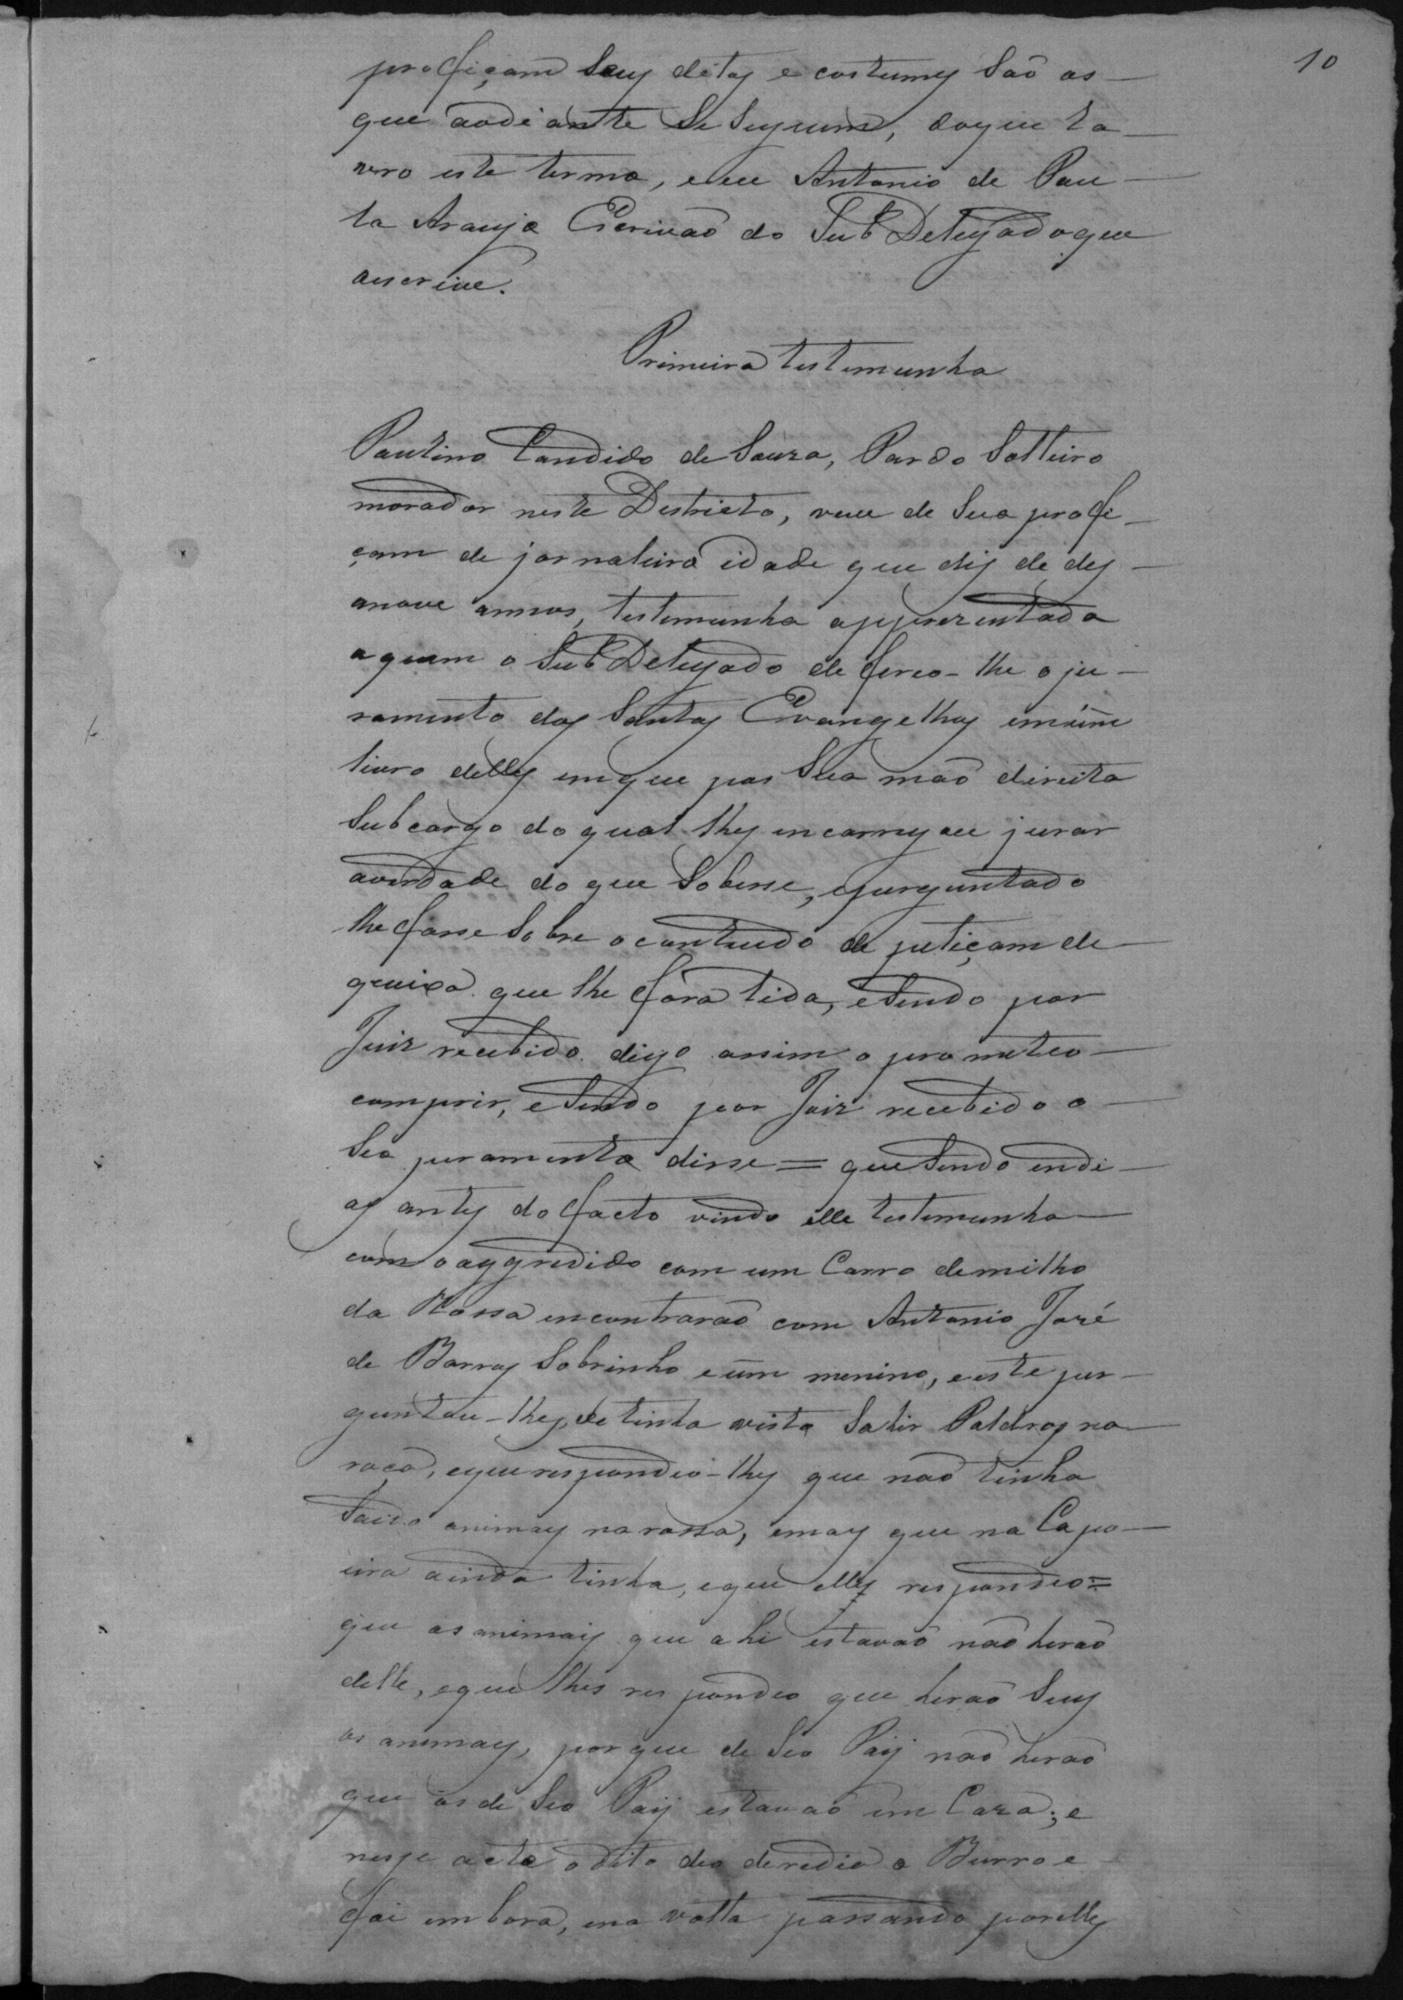 10
profiçam seus ditos e costumes saõ os
que aodiante se seguem, doque la
vro este termo, e eu Antonio de Pau
la Araujo Escrivaõ do Sub Delegado que
escrive.
Primeira testemunha
Paulino Candido de Souza, Pardo Solteiro
morador neste Destricto, veve de sua profi
çam de jornaleiro idade que dis de des
anove annos, testemunha apprezentada
aquem o Sub Delegado defereo-lhe o ju
ramento dos Santos Evangelhos em úm
livro delles emque pos sua maõ direita
Subcargo do qual lhes incarregou jurar
averdade do que soberse, eperguntado
lhe fosse sobre ocontiudo da petiçam de
queixa que lhe fôra lida, e sendo por
Juiz recebido digo assim o prometeo
comprir, e sendo por Juiz recebido o
seo juramento disse = que sendo endi
as antes do facto vindo elle testemunha
com o aggredido com um Carro demilho
da Rossa encontraraõ com Antonio José
de Barros Sobrinho e úm menino, eeste per
guntou-lhes se tinha visto sahir Poldros na
roça, eque respondeo-lhes que naõ tinha
saido animais na rossa, emas que na Capo
eira ainda tinha, eque elles respondeo =
que os animais que ahi estavaõ naõ heraõ
delle, e que lhes respondeo que heraõ seus
os animais, porque de seo Paij naõ heraõ
que os de seo Paij estavaõ em Caza; e
nesse acto o dito deo deredia o Burro e
foi embora, ena volta passando por elles